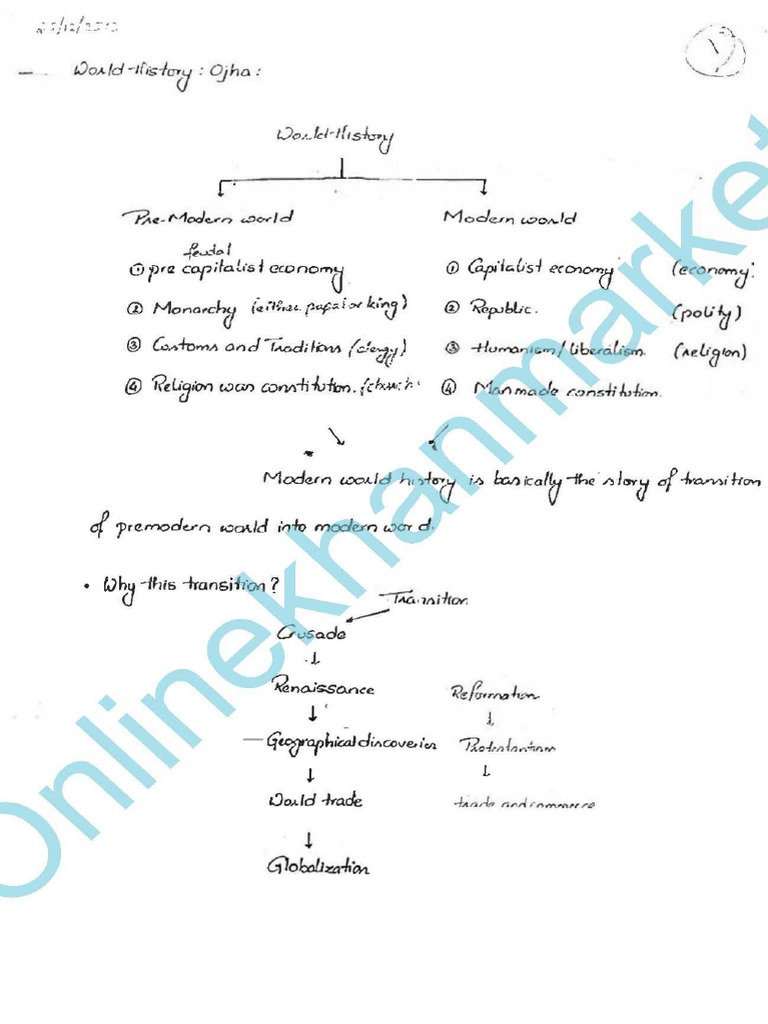 1
World-History : Ojha :
World-History
Pre-Modern world Modern world
feudal
① pre capitalist economy ① Capitalist economy (economy)
② Monarchy (either pope or king) ② Republic. (polity)
③ Customs and Traditions (clergy) ③ Humanism/liberalism. (religion)
④ Religion was constitution. (church ④ Man made constitution.
Modern world history is basically the story of transition
of premodern world into modern world.
• Why this transition?
Transition
Crusade
Renaissance Reformation
Geographical discoveries Protestantism
World trade trade and commerce
Globalization
Onlinekhanmarket